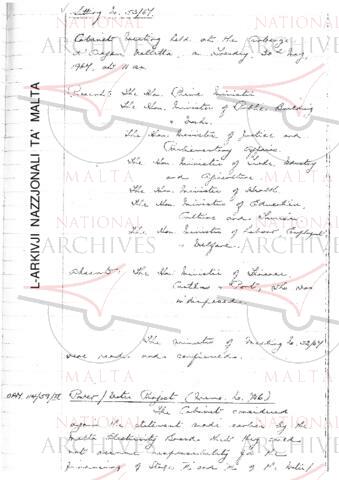 Sitting No. 53/67
Cabinet Meeting held at the Auberge
d'Aragon Valletta, on Tuesday, 30th May,
1967, at 11 am
Present: The Hon. Prime Minister
The Hon. Minister of Public Building
& Works.
The Hon. Minister of Justice and
Parliamentary Affairs.
The Hon. Minister of Trade, Industry
and Agriculture
The Hon. Minister of Health
The Hon. Minister of Education,
Culture and Tourism.
The Hon. Minister of Labour, Employment
& Welfare.
Absent: The Hon Minister of Finance,
Customs & Port, who was
indisposed.
The minutes of Meeting No. 52/67
were read and confirmed.
OPM Power/Water Project (Memo. No.
The Cabinet considered
again the statement made earlier by the
Malta Electricity Board that they could
not accept responsibility for the
financing of Stage of the Water/
L-ARKIVJI NAZZJONALI TA' MALTA
NATIONAL
ARCHIVES
MALTA